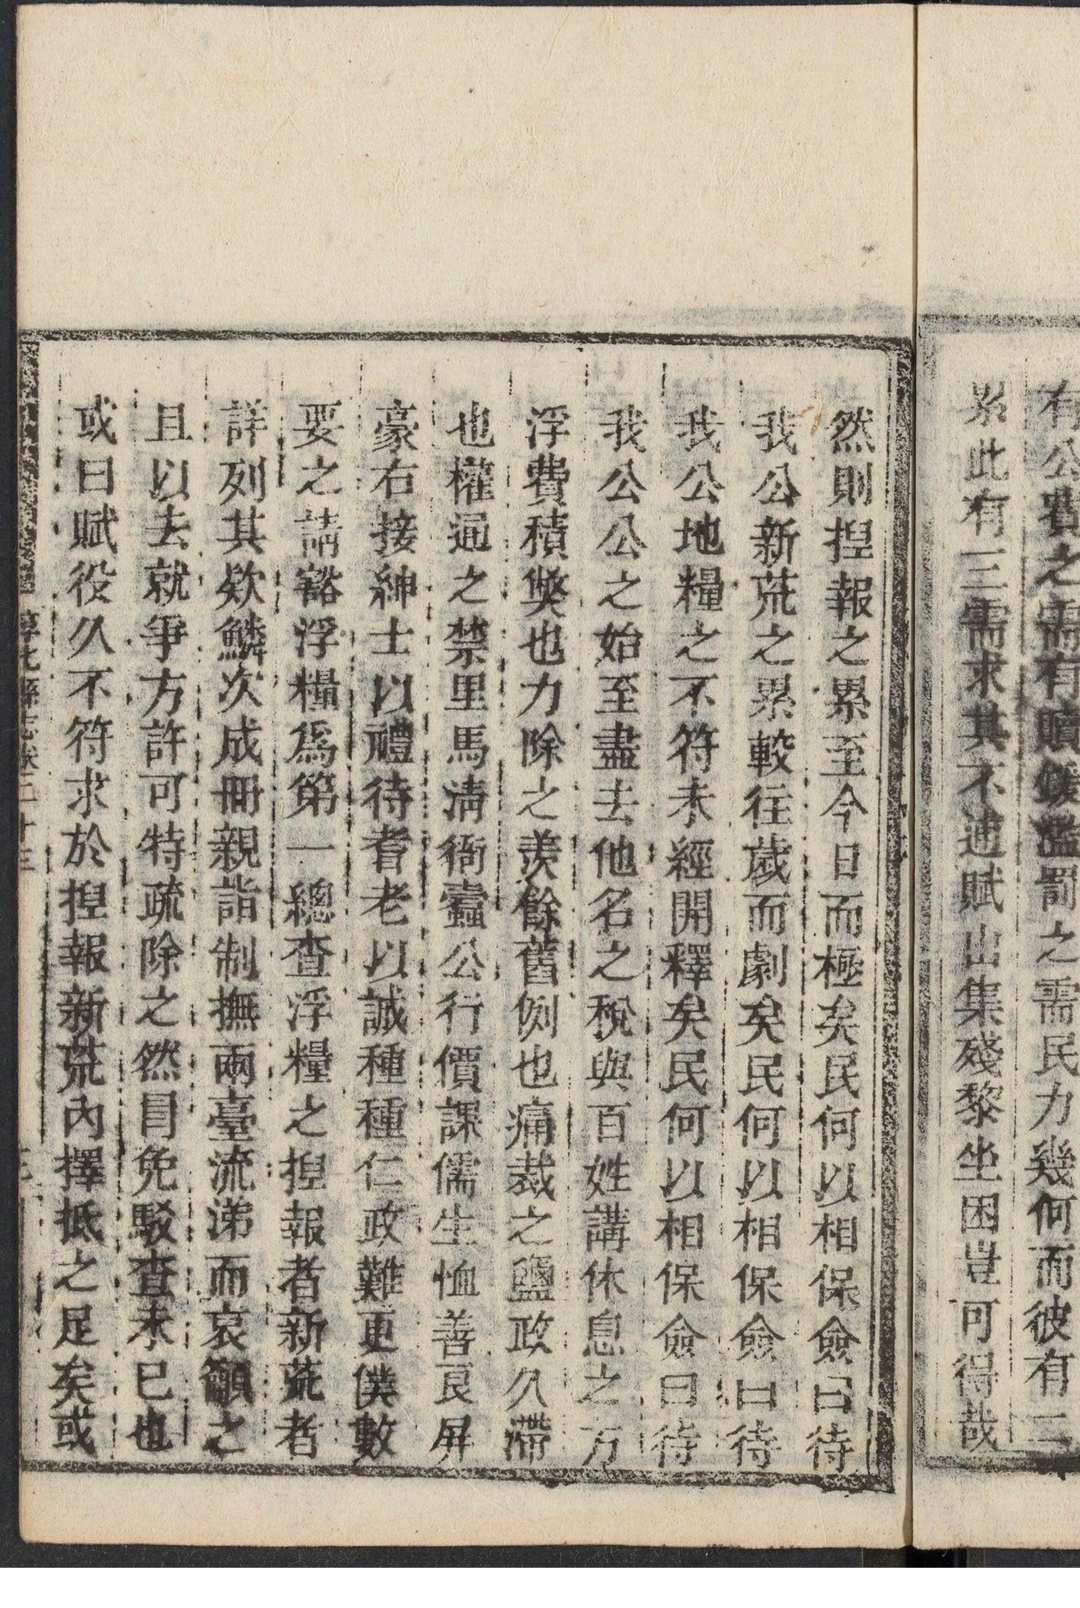 有公費之需有贖鍰濫罰之需民力幾何而彼有二
累此有三需求其不逋賦出集殘黎坐困豈可得哉
然則揑報之累至今日而極矣民何以相保僉曰待
我公新荒之累較往歲而劇矣民何以相保僉曰待
我公地糧之不符未經開釋矣民何以相保僉曰待
我公公之始至盡去他名之稅與百姓講休息之方
浮費積獘也力除之羨餘舊例也痛裁之鹽政久滯
也權通之禁里馬淸衙蠹公行價課儒生恤善良屏
豪右接紳士以禮待耆老以誠種種仁政難更僕數
要之請豁浮糧爲第一總查浮糧之揑報者新荒者
詳列其欵鱗次成冊親詣制撫兩臺流涕而哀籲之
且以去就爭方許可特疏除之然目免駁查未已也
或曰賦役久不符求於揑報新荒內擇抵之足矣或
縣志卷二十三